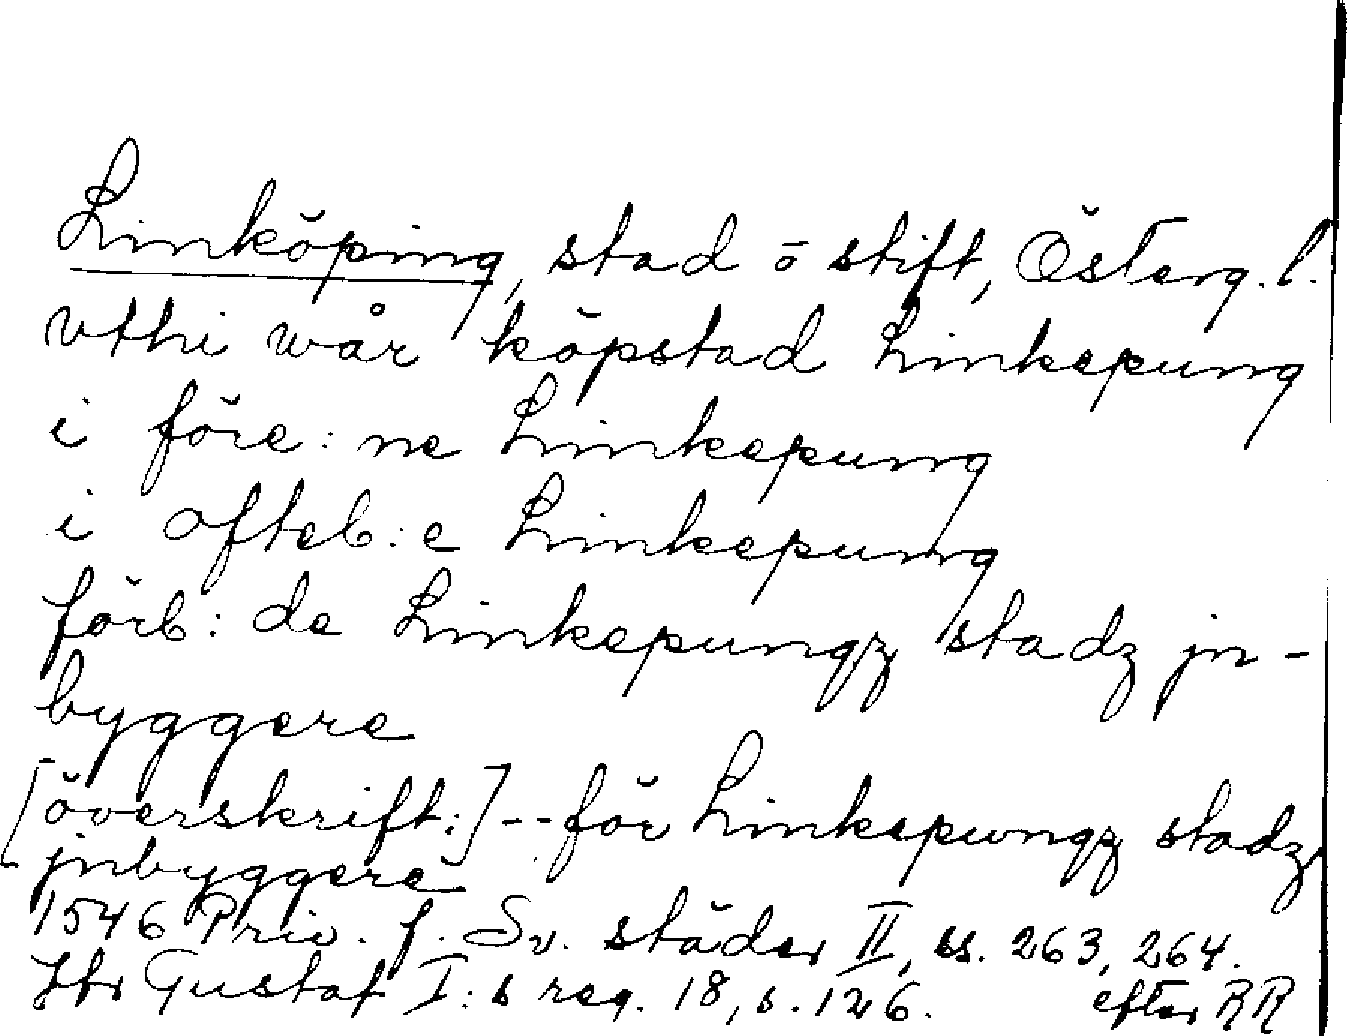 Linköping, stad o stift, Österg.l.
vthi wår köpstad Linkepung
i före:ne Linkepung
i ofteb:e Linkepung
förb:de Linkepungz stadz jn-
byggere
[överskrift:] -- för Linkepungz stadz
jnbyggere
1546 Priv. f. Sv. städer II, ss. 263, 264.
Jfr Gustaf I:s reg. 18, s. 126. efter RR